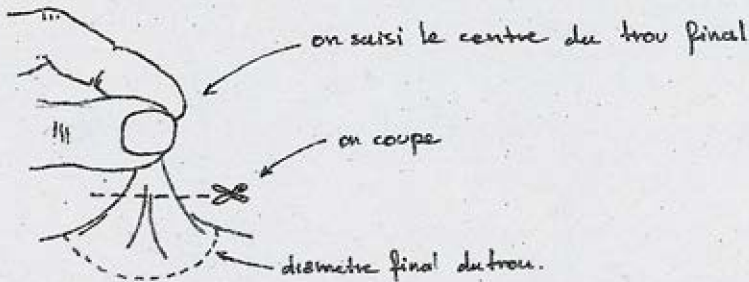 on saisi le centre du trou final
on coupe
diametre final du trou.